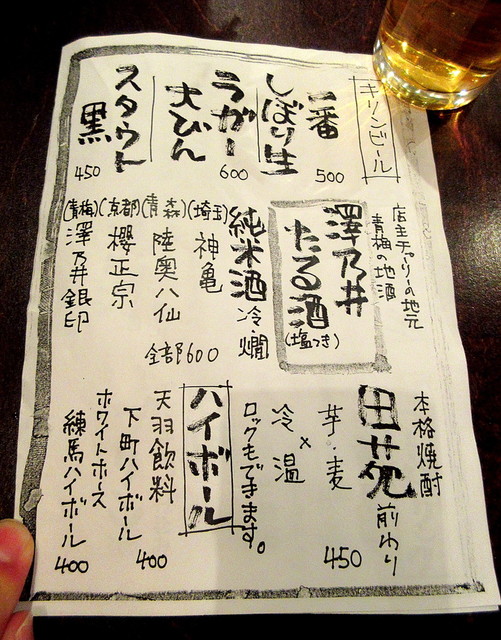 キリンビール
一番
しぼり生
500
ラガー
大びん
600
スタウト
黒
450
店主チャーリーの地元
青梅の地酒
澤乃井
たる酒
(塩つき)
純米酒
冷・燗
(埼玉)神亀
(青森)陸奥八仙
(京都)櫻正宗
(青梅)澤乃井銀印
全部600
本格焼酎
田苑
前わり
芋・麦
450
冷×温
ロックもできます。
ハイボール
天羽飲料
下町ハイボール
400
ホワイトホース
練馬ハイボール
400